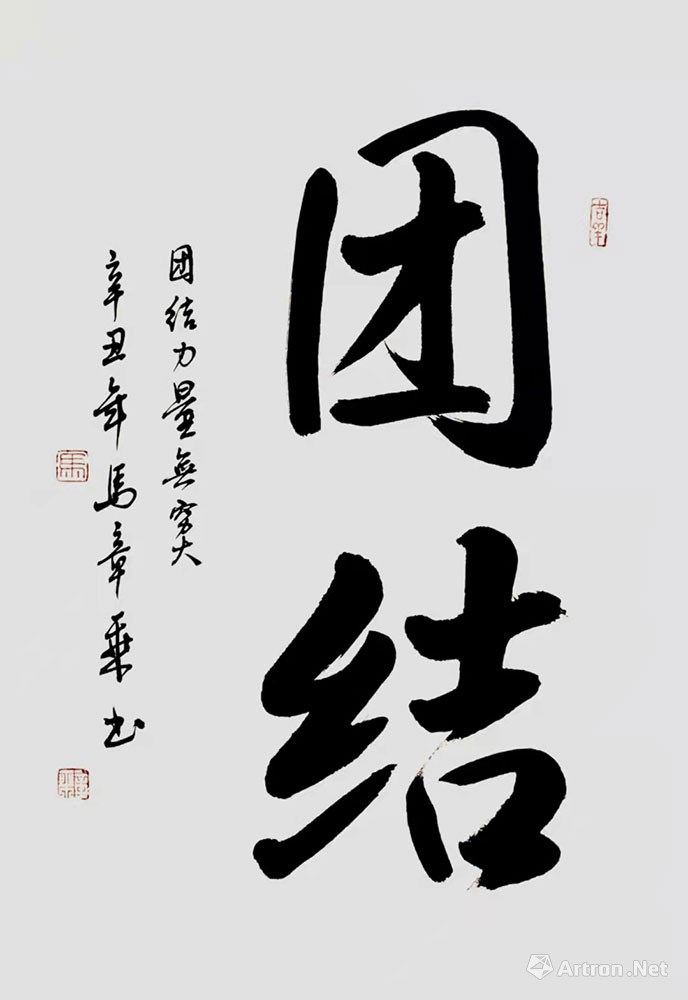 团结
团结力量無穷大
辛丑年馬章乘书
Artron.Net